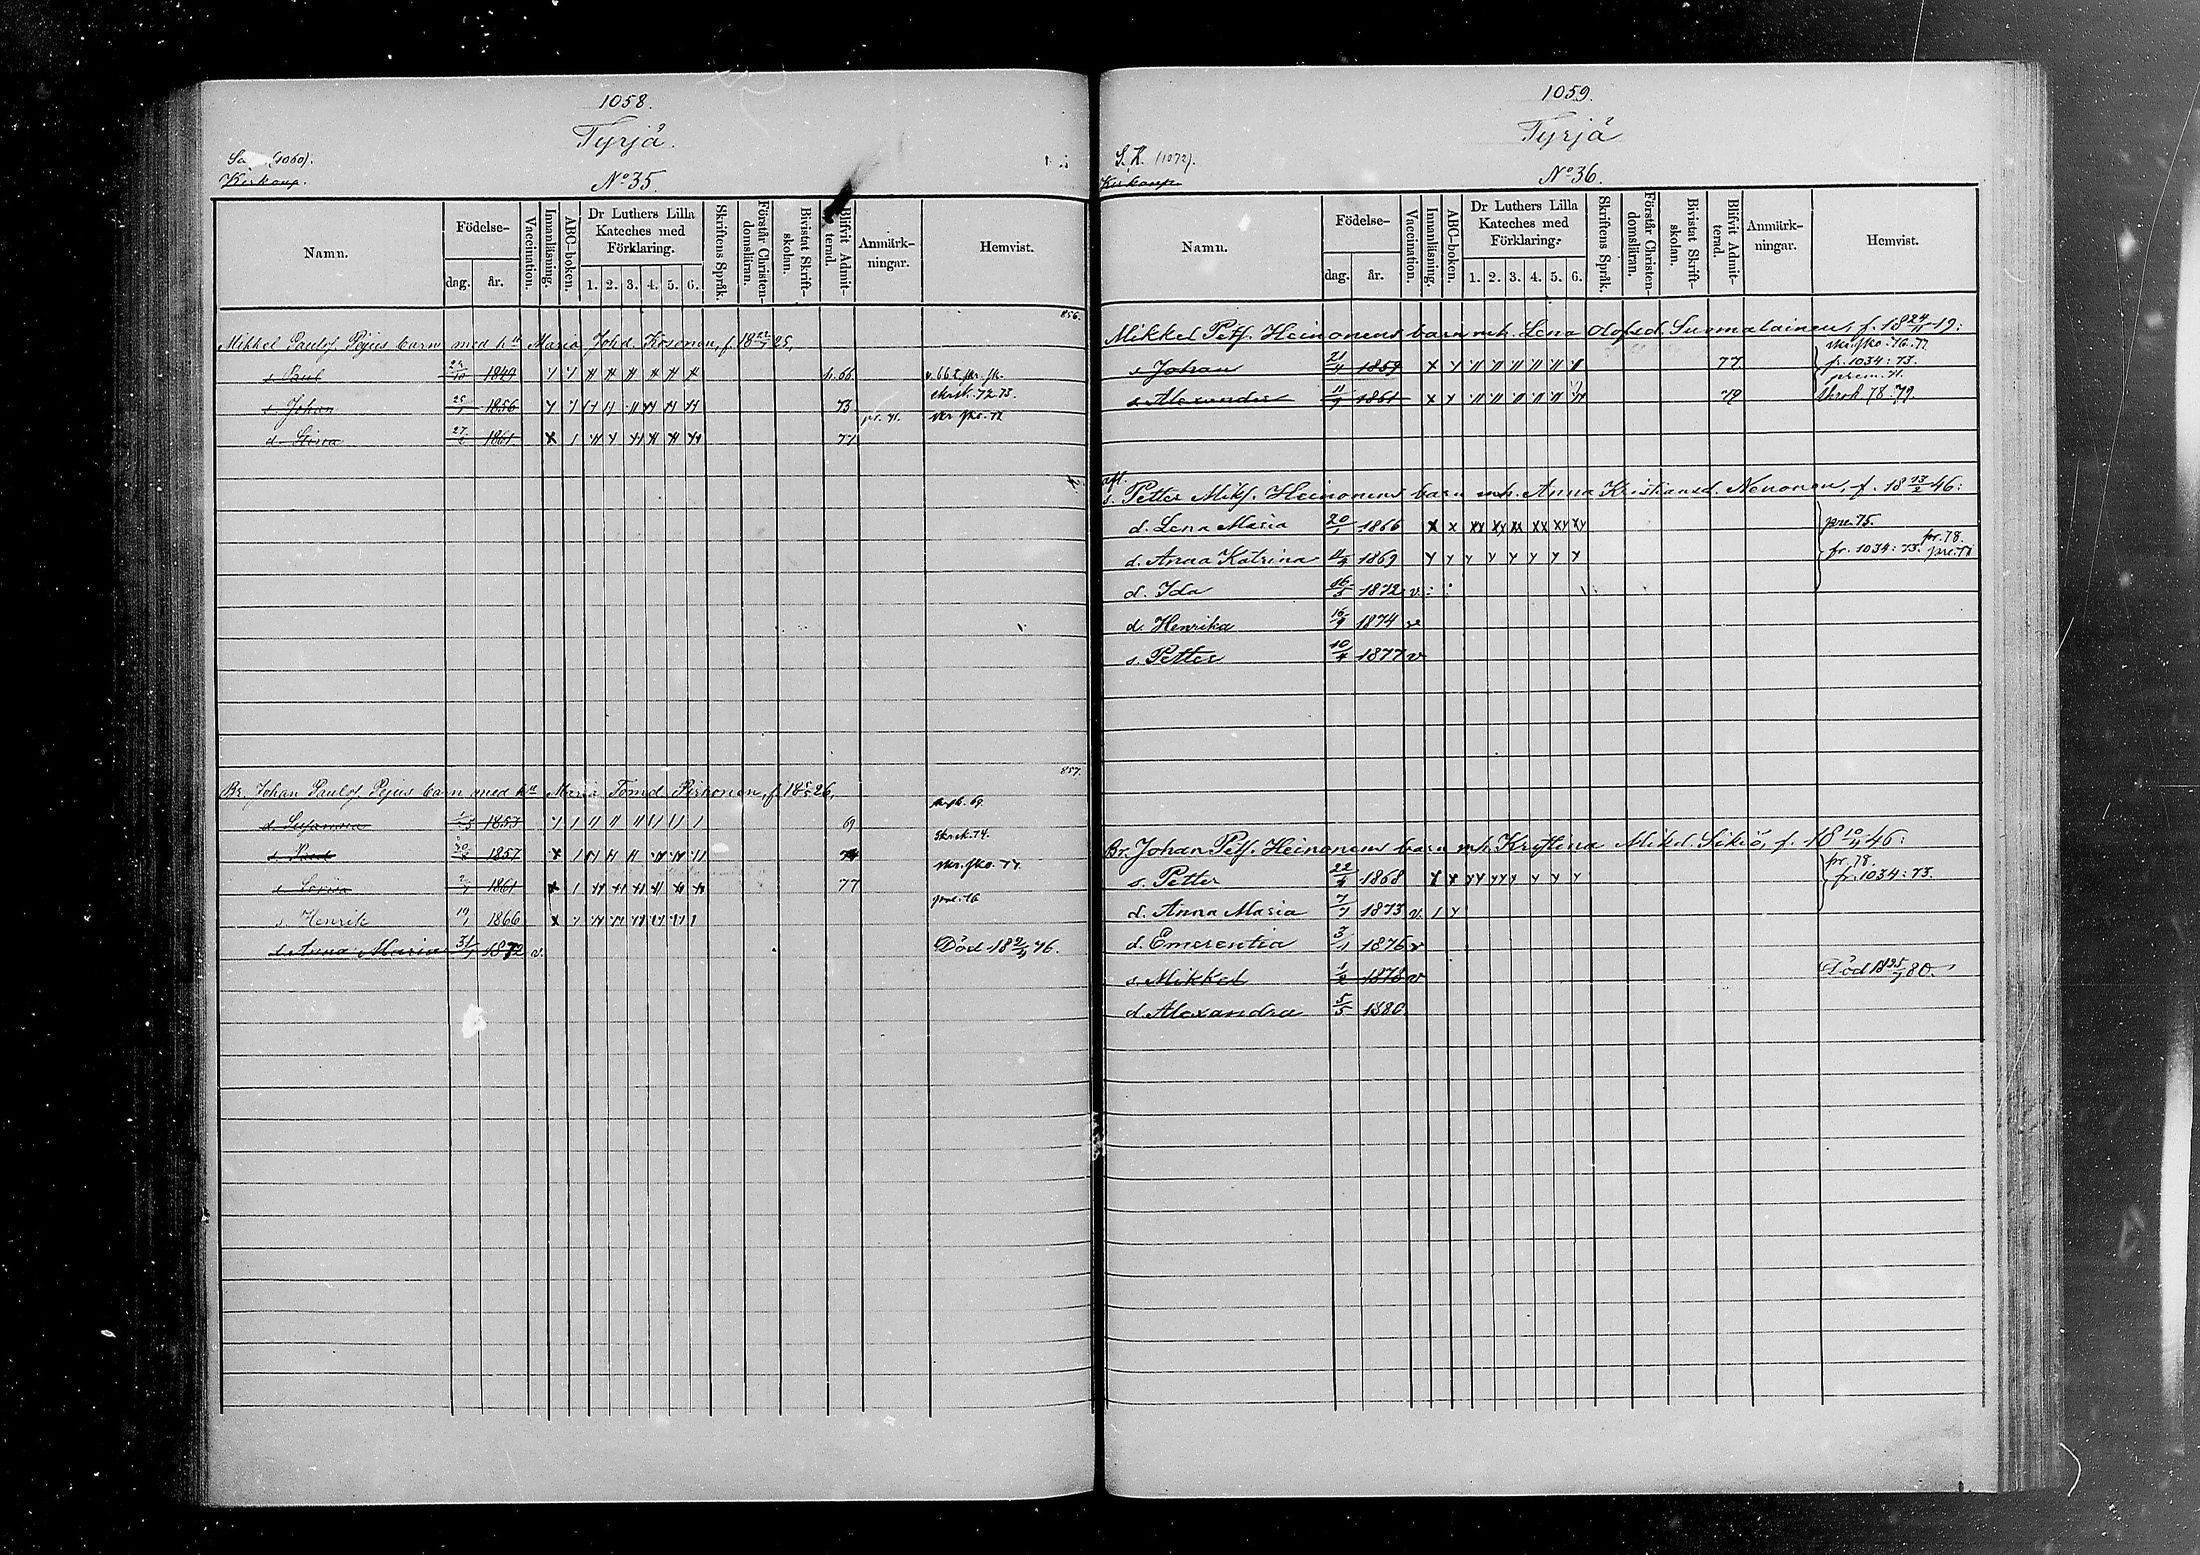 1058.
Tyrjä.
(1060).
Kirkonp.
No 35.
Namn. Födelse- dag. år. Vaccination. Innanläsning. ABC-boken. Dr Luthers Lilla Kateches med Förklaring. 1. 2. 3. 4. 5. 6. Skriftens Språk. Förstår Christendomsläran. Bivistat Skriftskolan. Blifvit Admitterad. Anmärkningar. Hemvist.
856.
Mikkel Paulsf. barn med hu Maria Johd. Kosonen, f. 18 25,
s. Paul 1849 66.
s. Johan 25/1 1856 73 skrsk. 72. 73.
d. Stina 27/6 1861 77 pr. 71. skr sko. 77
857.
Br. Johan Paulsf. barn med hu Maria Tomd Pirhonen, f. 18 26,
d. Susanna 1853 69 69.
s. Paul 1857 74 skrsk. 74.
d. Lovisa 1861 77 skr. sko. 77
s. Henrik 19/1 1866 pre. 76
d. Anna Maria 31/7 1872 v. Död 18 76.
1059.
Tyrjä
S. K. (1072).
Kirkonp.
No 36.
Namn. Födelse- dag. år. Vaccination. Innanläsning. ABC-boken. Dr Luthers Lilla Kateches med Förklaring. 1. 2. 3. 4. 5. 6. Skriftens Språk. Förstår Christendomsläran. Bivistat Skriftskolan. Blifvit Admitterad. Anmärkningar. Hemvist.
Mikkel Petf. Heinonens barn mh. Lena Olofsd. Suomalainen, f. 18 24/11 19:
skr. sko. 76. 77
s. Johan 21/4 1859 77 fr. 1034: 73.
prem. 71.
s. Alexander 11/9 1861 79 skrsk 78. 79.
afl.
s. Petter Mikf. Heinonens barn mh. Anna Kristiansd. Nenonen, f. 18 13/2 46:
d. Lena Maria 20/1 1866 pre. 75.
d. Anna Katrina 1869 fr. 1034: 73. pr. 78.
d. Ida 16/5 1872 v.
d. Henrika 16/9 1874 v
s. Petter 10/4 1877 v
Br. Johan Petf. Heinonens barn mh. Kristina Mikd. Sikiö, f. 18 10/11 46:
s. Petter 22/4 1868 pr. 78. fr. 1034: 73.
d. Anna Maria 7/7 1873 v.
d. Emerentia 3/1 1876 v
s. Mikkel 1/2 1878 v Död 18 25/7 80.
d. Alexandra 5/5 1880